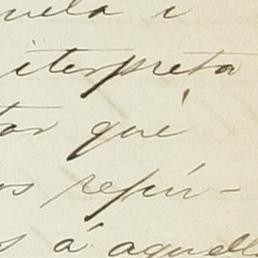 uela i
iterpreta
tar qué
os refún-
s á aquell